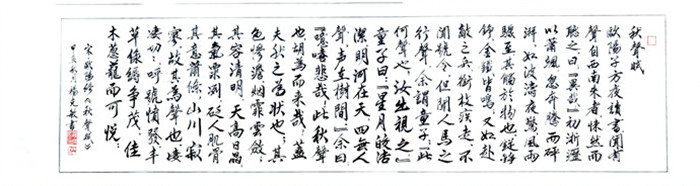 秋聲賦
歐陽子方夜讀書聞有
聲自西南來者悚然而
聽之曰:「異哉!」初淅瀝
以蕭颯忽奔騰而砰
湃,如波濤夜驚風雨
驟至其觸於物也鏦錚
錚金鐵皆鳴又如赴
敵之兵銜枚疾走不
聞號令,但聞人馬之
行聲余謂童子:「此
何聲也,汝出視之」
童子曰:「星月皎潔
潔明河在天四無人
聲声在樹間」余曰
「噫嘻悲哉,此秋聲
也胡為而來哉,蓋
夫秋之為狀也:其
色慘澹煙霏雲斂;
其容清明,天高日晶;
其氣慄冽,砭人肌骨
其意蕭條,山川寂
寥,故其為聲也,淒
淒切:呼號憤發丰
草綠縟爭茂,佳
木蔥蘢而可悅。
宋歐陽修 秋聲賦
甲辰秋 楊克敏書